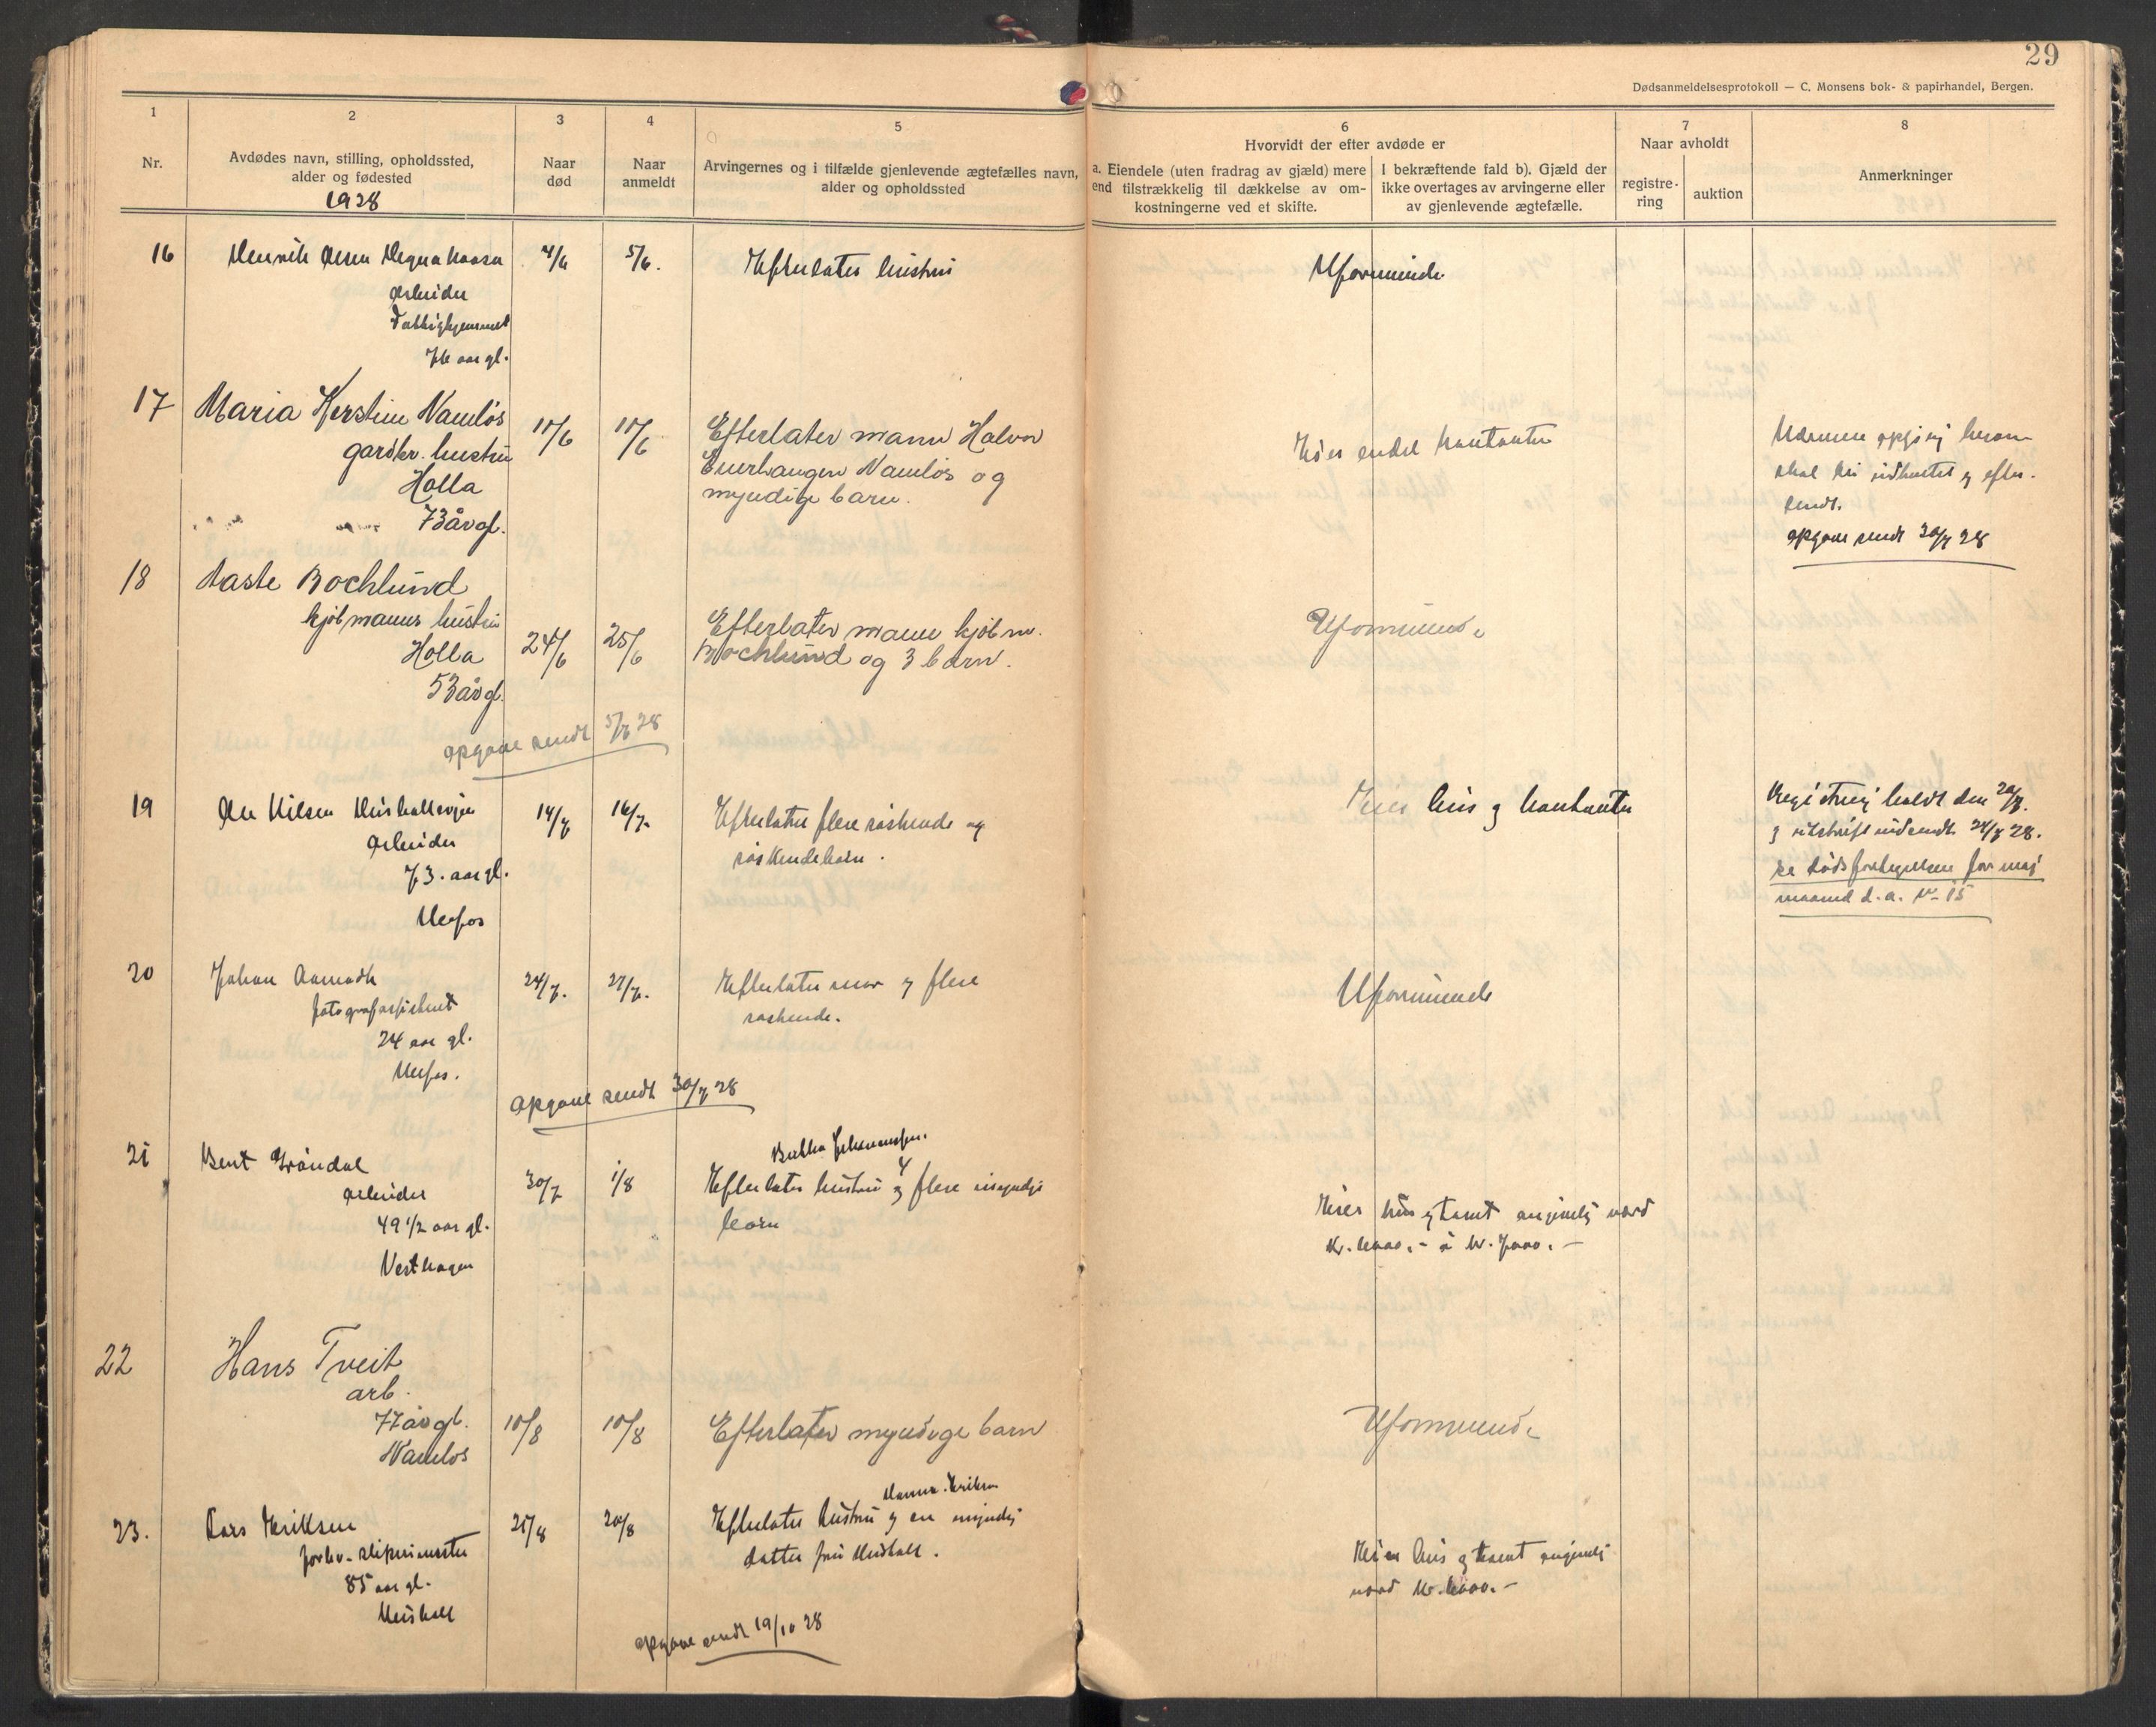 29
Dødsanmeldelsesprotokoll — C. Monsens bok- & papirhandel, Bergen.
1
Nr.
2
Avdødes navn, stilling, opholdssted,
alder og fødested
1928
3
Naar
død
4
Naar
anmeldt
5
Arvingernes og i tilfælde gjenlevende ægtefælles navn,
alder og opholdssted
6
Hvorvidt der efter avdøde er
a. Eiendele (uten fradrag av gjæld) mere
end tilstrækkelig til dækkelse av om-
kostningerne ved et skifte.
I bekræftende fald b). Gjæld der
ikke overtages av arvingerne eller
av gjenlevende ægtefælle.
7
Naar avholdt
registre-
ring
auktion
8
Anmerkninger
16
Henrik Olsen
arbeider
Fattighjemmet
aar gl.
4/6
5/6.
Efterlater hustru
Uformuende
17
Maria Kerstine Namløs
gardbr. hustru
Holla
73 år gl.
11/6
11/6
Efterlater mann Halvor
Namløs og
myndige barn.
endel kontanter
opgave sendt 30/7 28
18
Aaste Bochlund
kjøbmanns hustru
Holla
53 år gl.
24/6
25/6
Efterlater mann kjøbm.
Bochlund og 3 barn.
Uformuende
opgave sendt 5/7 28
19
Ole Nilsen
arbeider
73. aar gl.
Ulefos
14/7
16/7.
Efterlater flere søskende og
søskendebarn.
hus og kontanter
Registrering holdt den 20/7.
og utskrift indsendt 24/7 28.
se dødsfortegnelsen for maj
maaned d.a. Nr 15
20
Johan
fotografassistent
24 aar gl.
Ulefos.
24/7.
27/7.
Efterlater mor og flere
søskende.
Uformuende
opgave sendt 30/7 28
21
Bent Grøndal
arbeider
49 1/2 aar gl.
Vesthagen
30/7
1/8
Johannessen.
Efterlater hustru og flere umyndige
barn
hus og tomt angivelig værd
22
Hans Tveit
arb.
77 år gl.
Namløs
10/8
10/8
Efterlater myndige barn
Uformuende
23.
Lars Eriksen
forhv. slipemester
85 aar gl.
25/8
Eriksen
Efterlater hustru og en myndig
datter
hus og tomt angivelig
værd kr.
opgave sendt 19/10 28